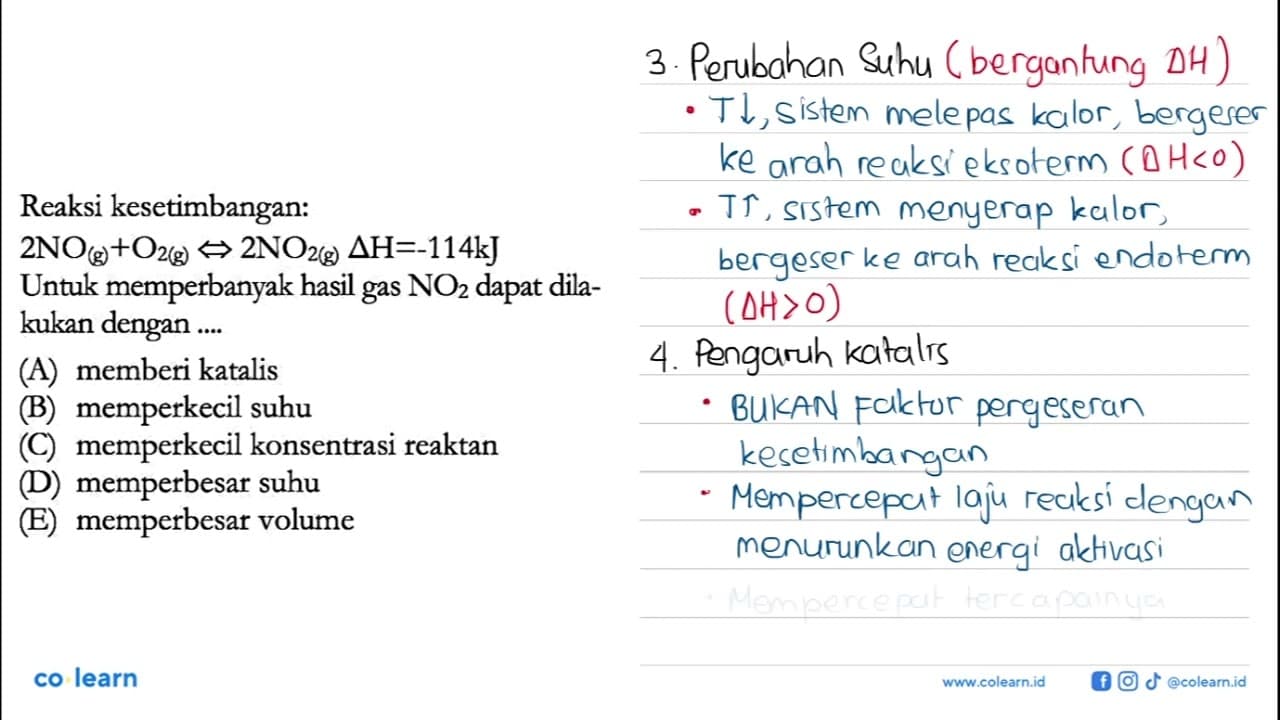 Reaksi kesetimbangan:
2NO(g)+O2(g) ⇔ 2NO2(g) ΔH=-114kJ
Untuk memperbanyak hasil gas NO2 dapat dila-
kukan dengan ....
(A) memberi katalis
(B) memperkecil suhu
(C) memperkecil konsentrasi reaktan
(D) memperbesar suhu
(E) memperbesar volume
3. Perubahan Suhu (bergantung ΔH)
• T↓, sistem melepas kalor, bergeser
ke arah reaksi eksoterm (ΔH<0)
• T↑, sistem menyerap kalor,
bergeser ke arah reaksi endoterm
(ΔH>0)
4. Pengaruh katalis
• BUKAN Faktor pergeseran
kesetimbangan
• Mempercepat laju reaksi dengan
menurunkan energi aktivasi
• Mempercepat tercapainya
co learn
www.colearn.id
@colearn.id